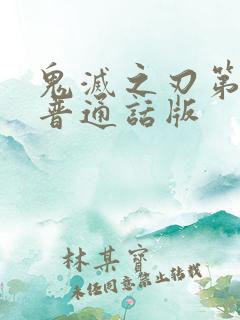 鬼滅之刃第
普通話版
林某寳
未经同意禁止转载